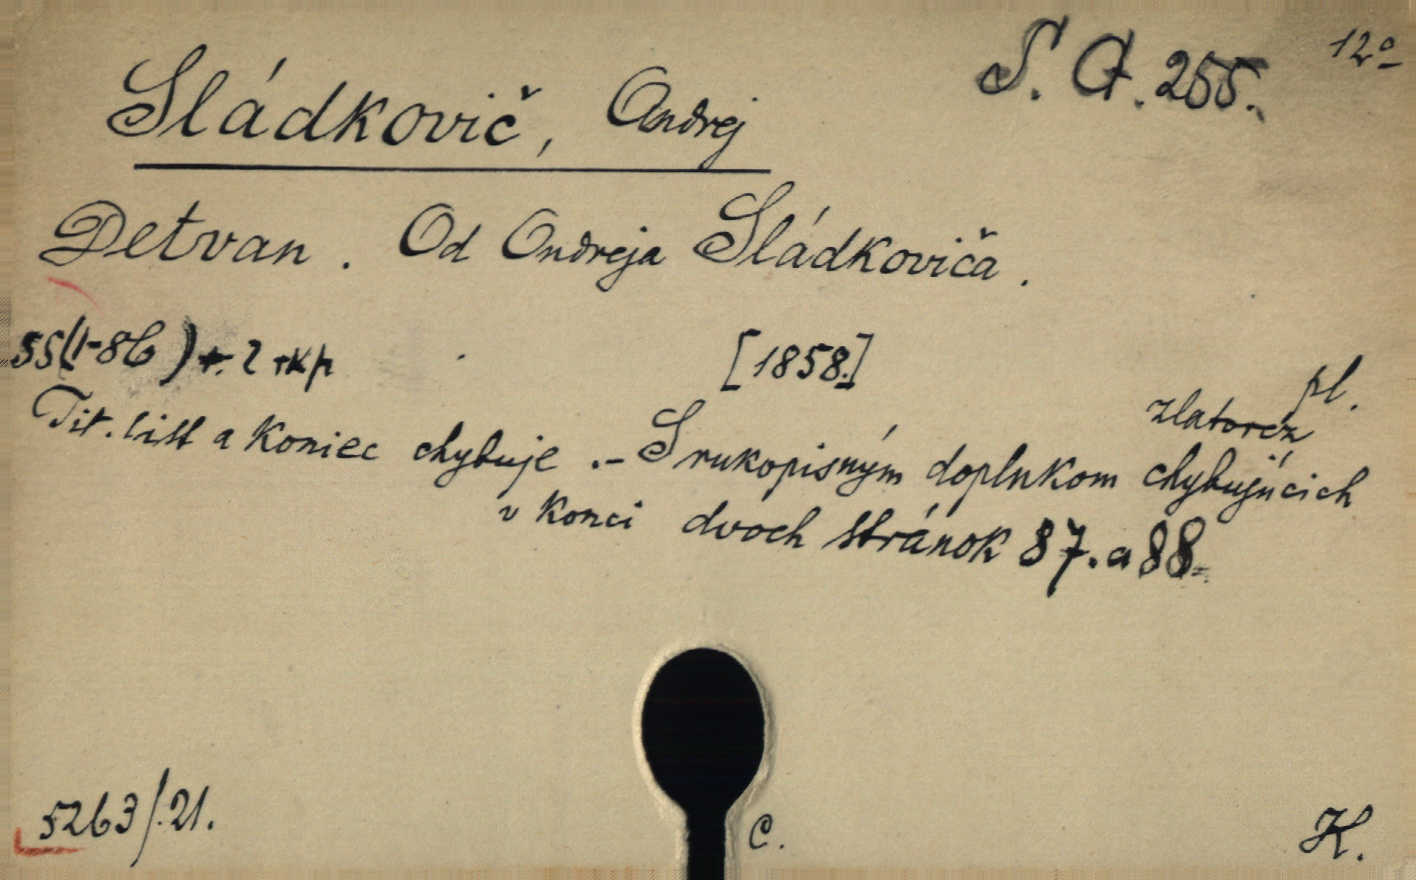 S. A. 255. 12º
Sládkovič, Ondrej
Detvan. Od Ondreja Sládkoviča.
[1858.]
pl.
zlatorez
Tit. list a koniec chybuje. - S rukopisným doplnkom chybujúcich
v konci dvoch stránok 87. a 88.
5263/21.
C.
K.